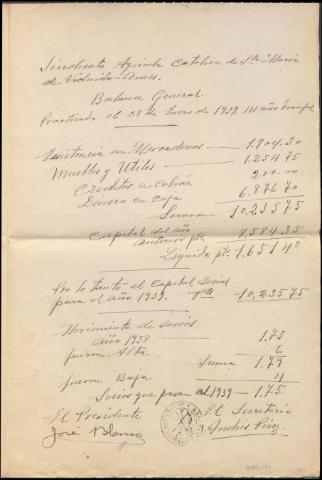 Sindicato Agricola Catolico de Sta Maria
de Viduido-Ames.
Balance General
Practicado el 28 de Enero de 1939. III año Triunfal
Existencia en Mercaderias — 1.904.30
Muebles y Utiles — 1.254 75
Creditos a cobrar 200.00
Dinero en Caja 6.876 70
Suman 10.235 75
Capital del año
anterior pts. 8.584.35
Liquido pts. 1.651 40
Por lo tanto el Capital Social
para el año 1939. — Pts 10,235 75
Movimiento de socios
año 1938 — 173
fueron Alta 6
Suma 179
fueron Baja 4
Socios que pasan al 1939 — 175.
El Presidente El Secretario
José Blanco Andrés Pérez